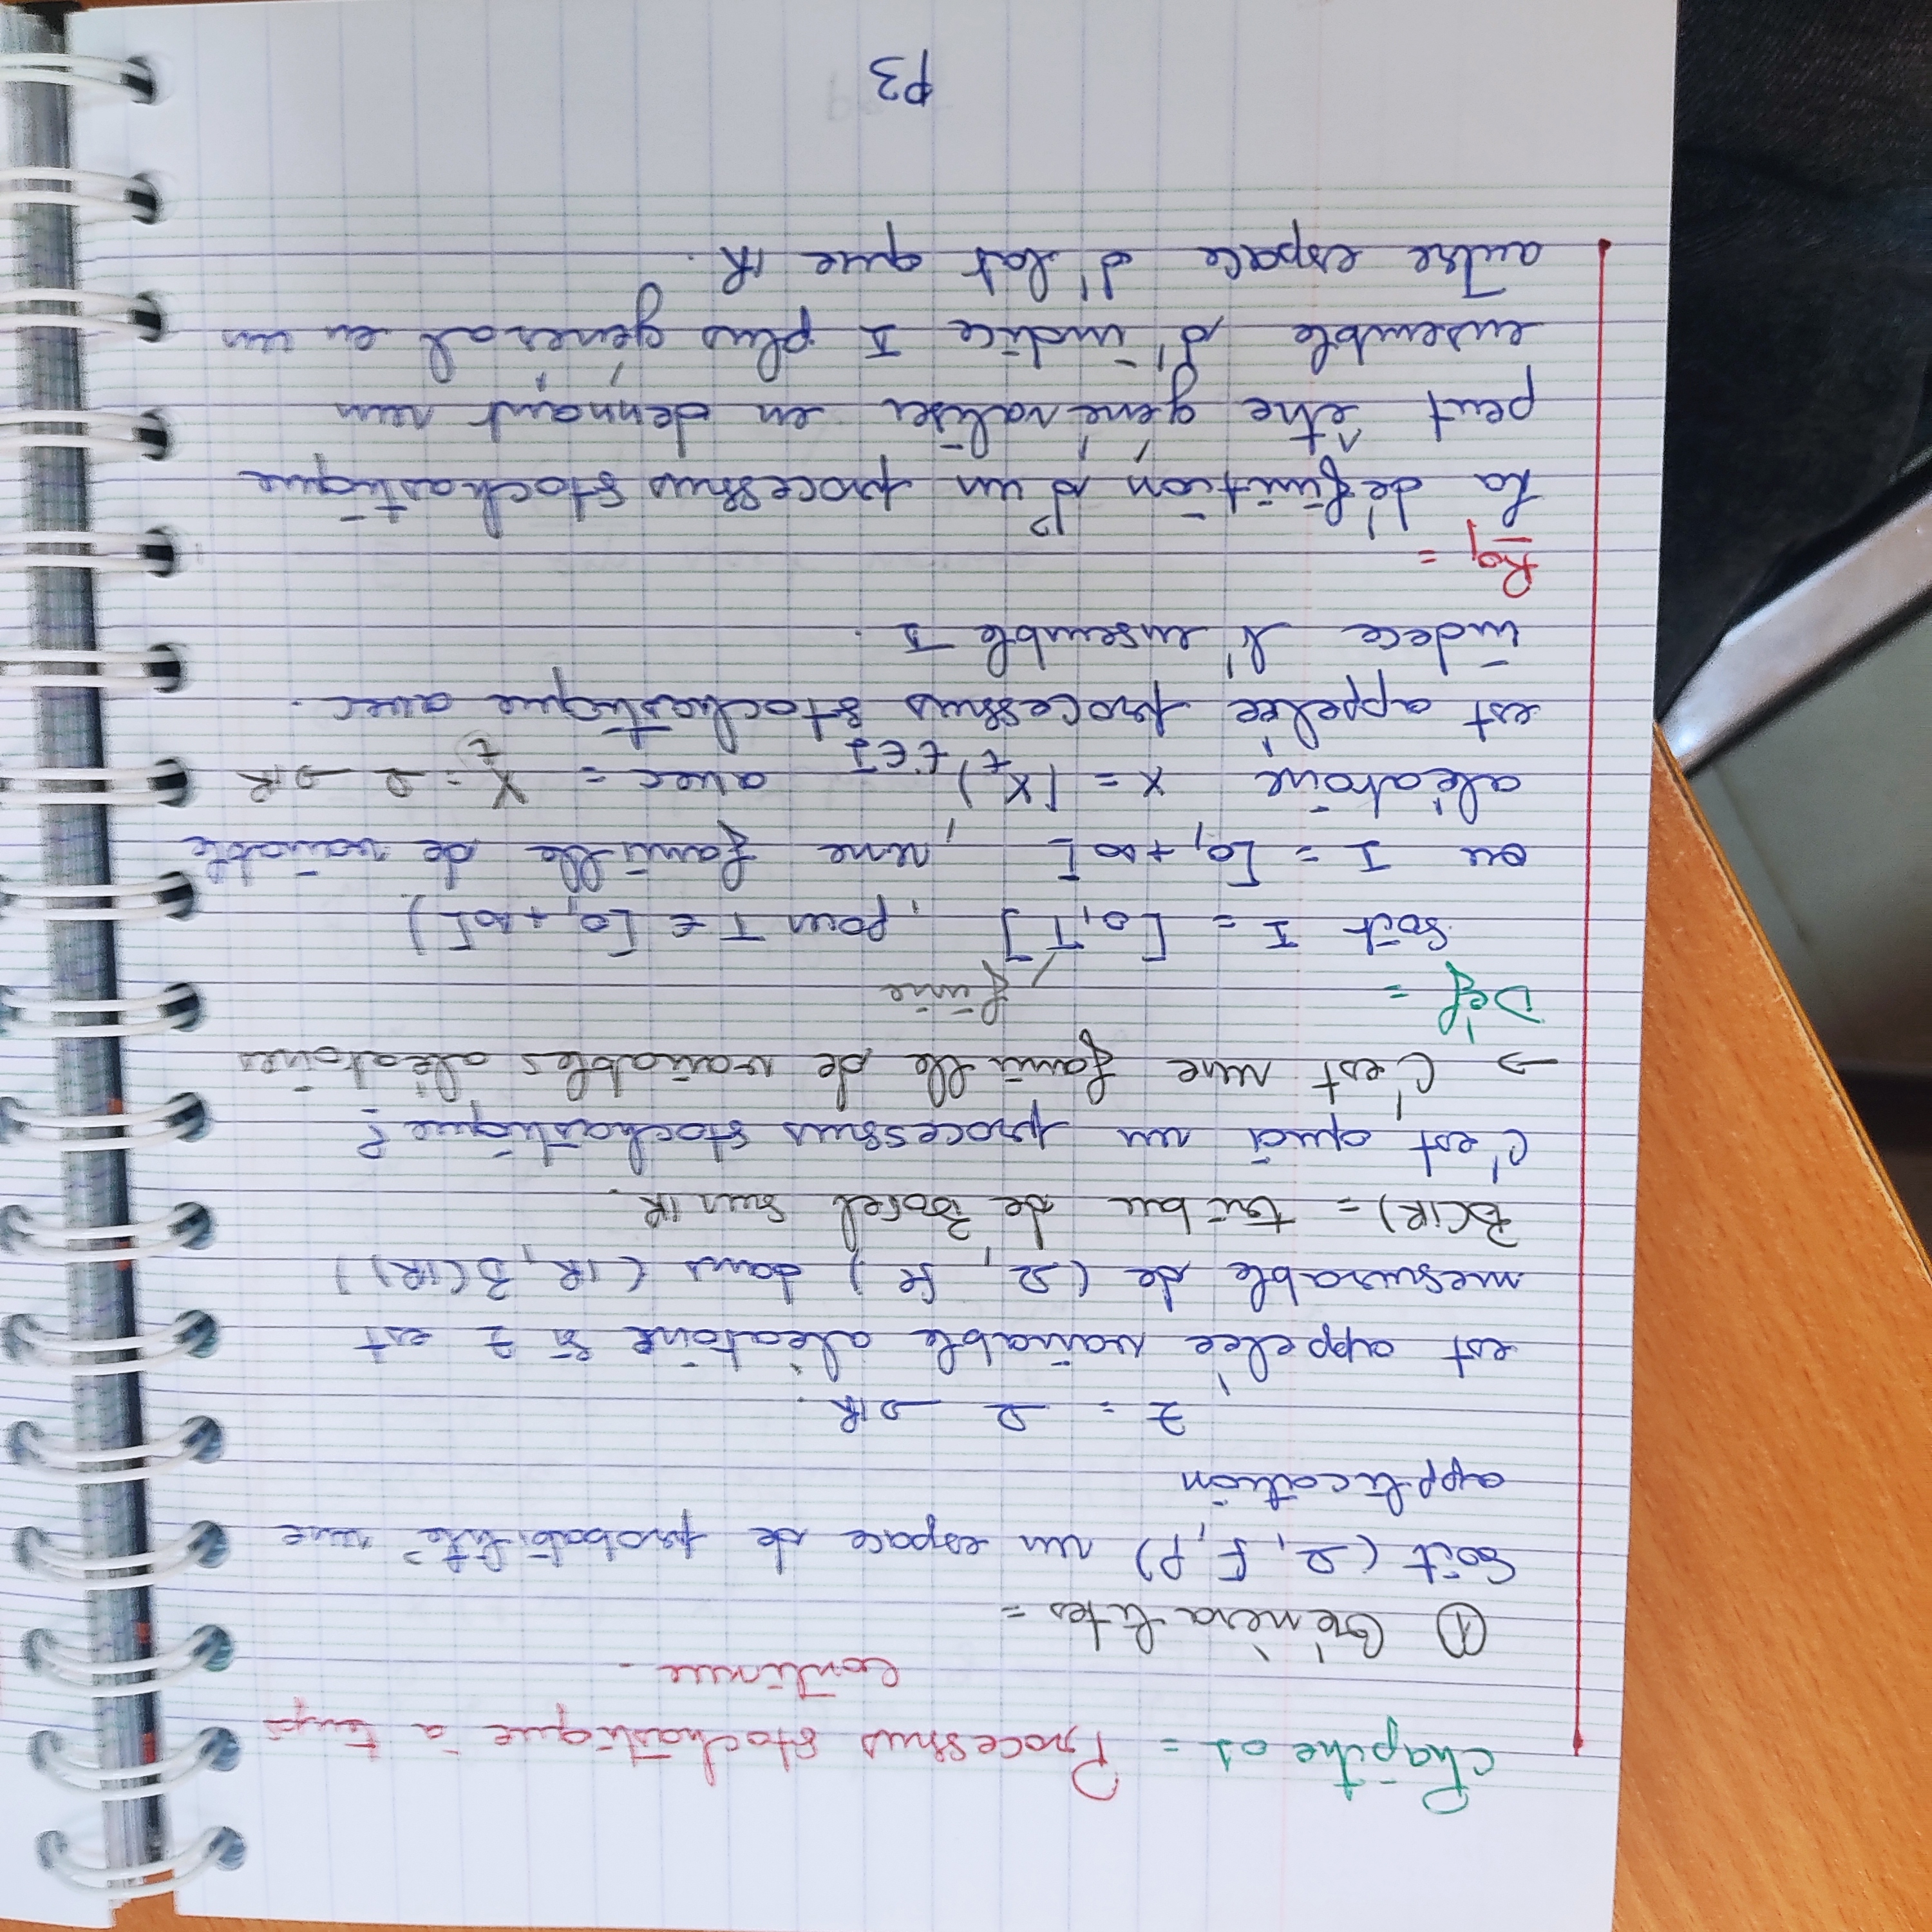 Chapitre 01 = Processus stochastique à temps
continue.
① Généralites =
Soit (Ω, F, P) un espace de probabilité une
application
Z = Ω → IR.
est appelée variable aléatoire si Z est
mesurable de (Ω, ) dans (IR, B(IR))
B(IR) = tribu de Borel sur IR.
C'est quoi un processus stochastique ?
→ C'est une famille de variables aléatoires
Déf =
finie
Soit I = [0,T] , pour T ∈ [0, +∞[)
ou I = [0, +∞[ , une famille de variable
aléatoire X = (X_t)_{t∈I} avec = X_t : Ω → IR
est appelée processus stochastique avec.
indece l'ensemble I.
Rq =
La définition d'un processus stochastique
peut être généraliser en dennant un
ensemble d'indice I plus général en un
autre espace d'lat que IR.
P3